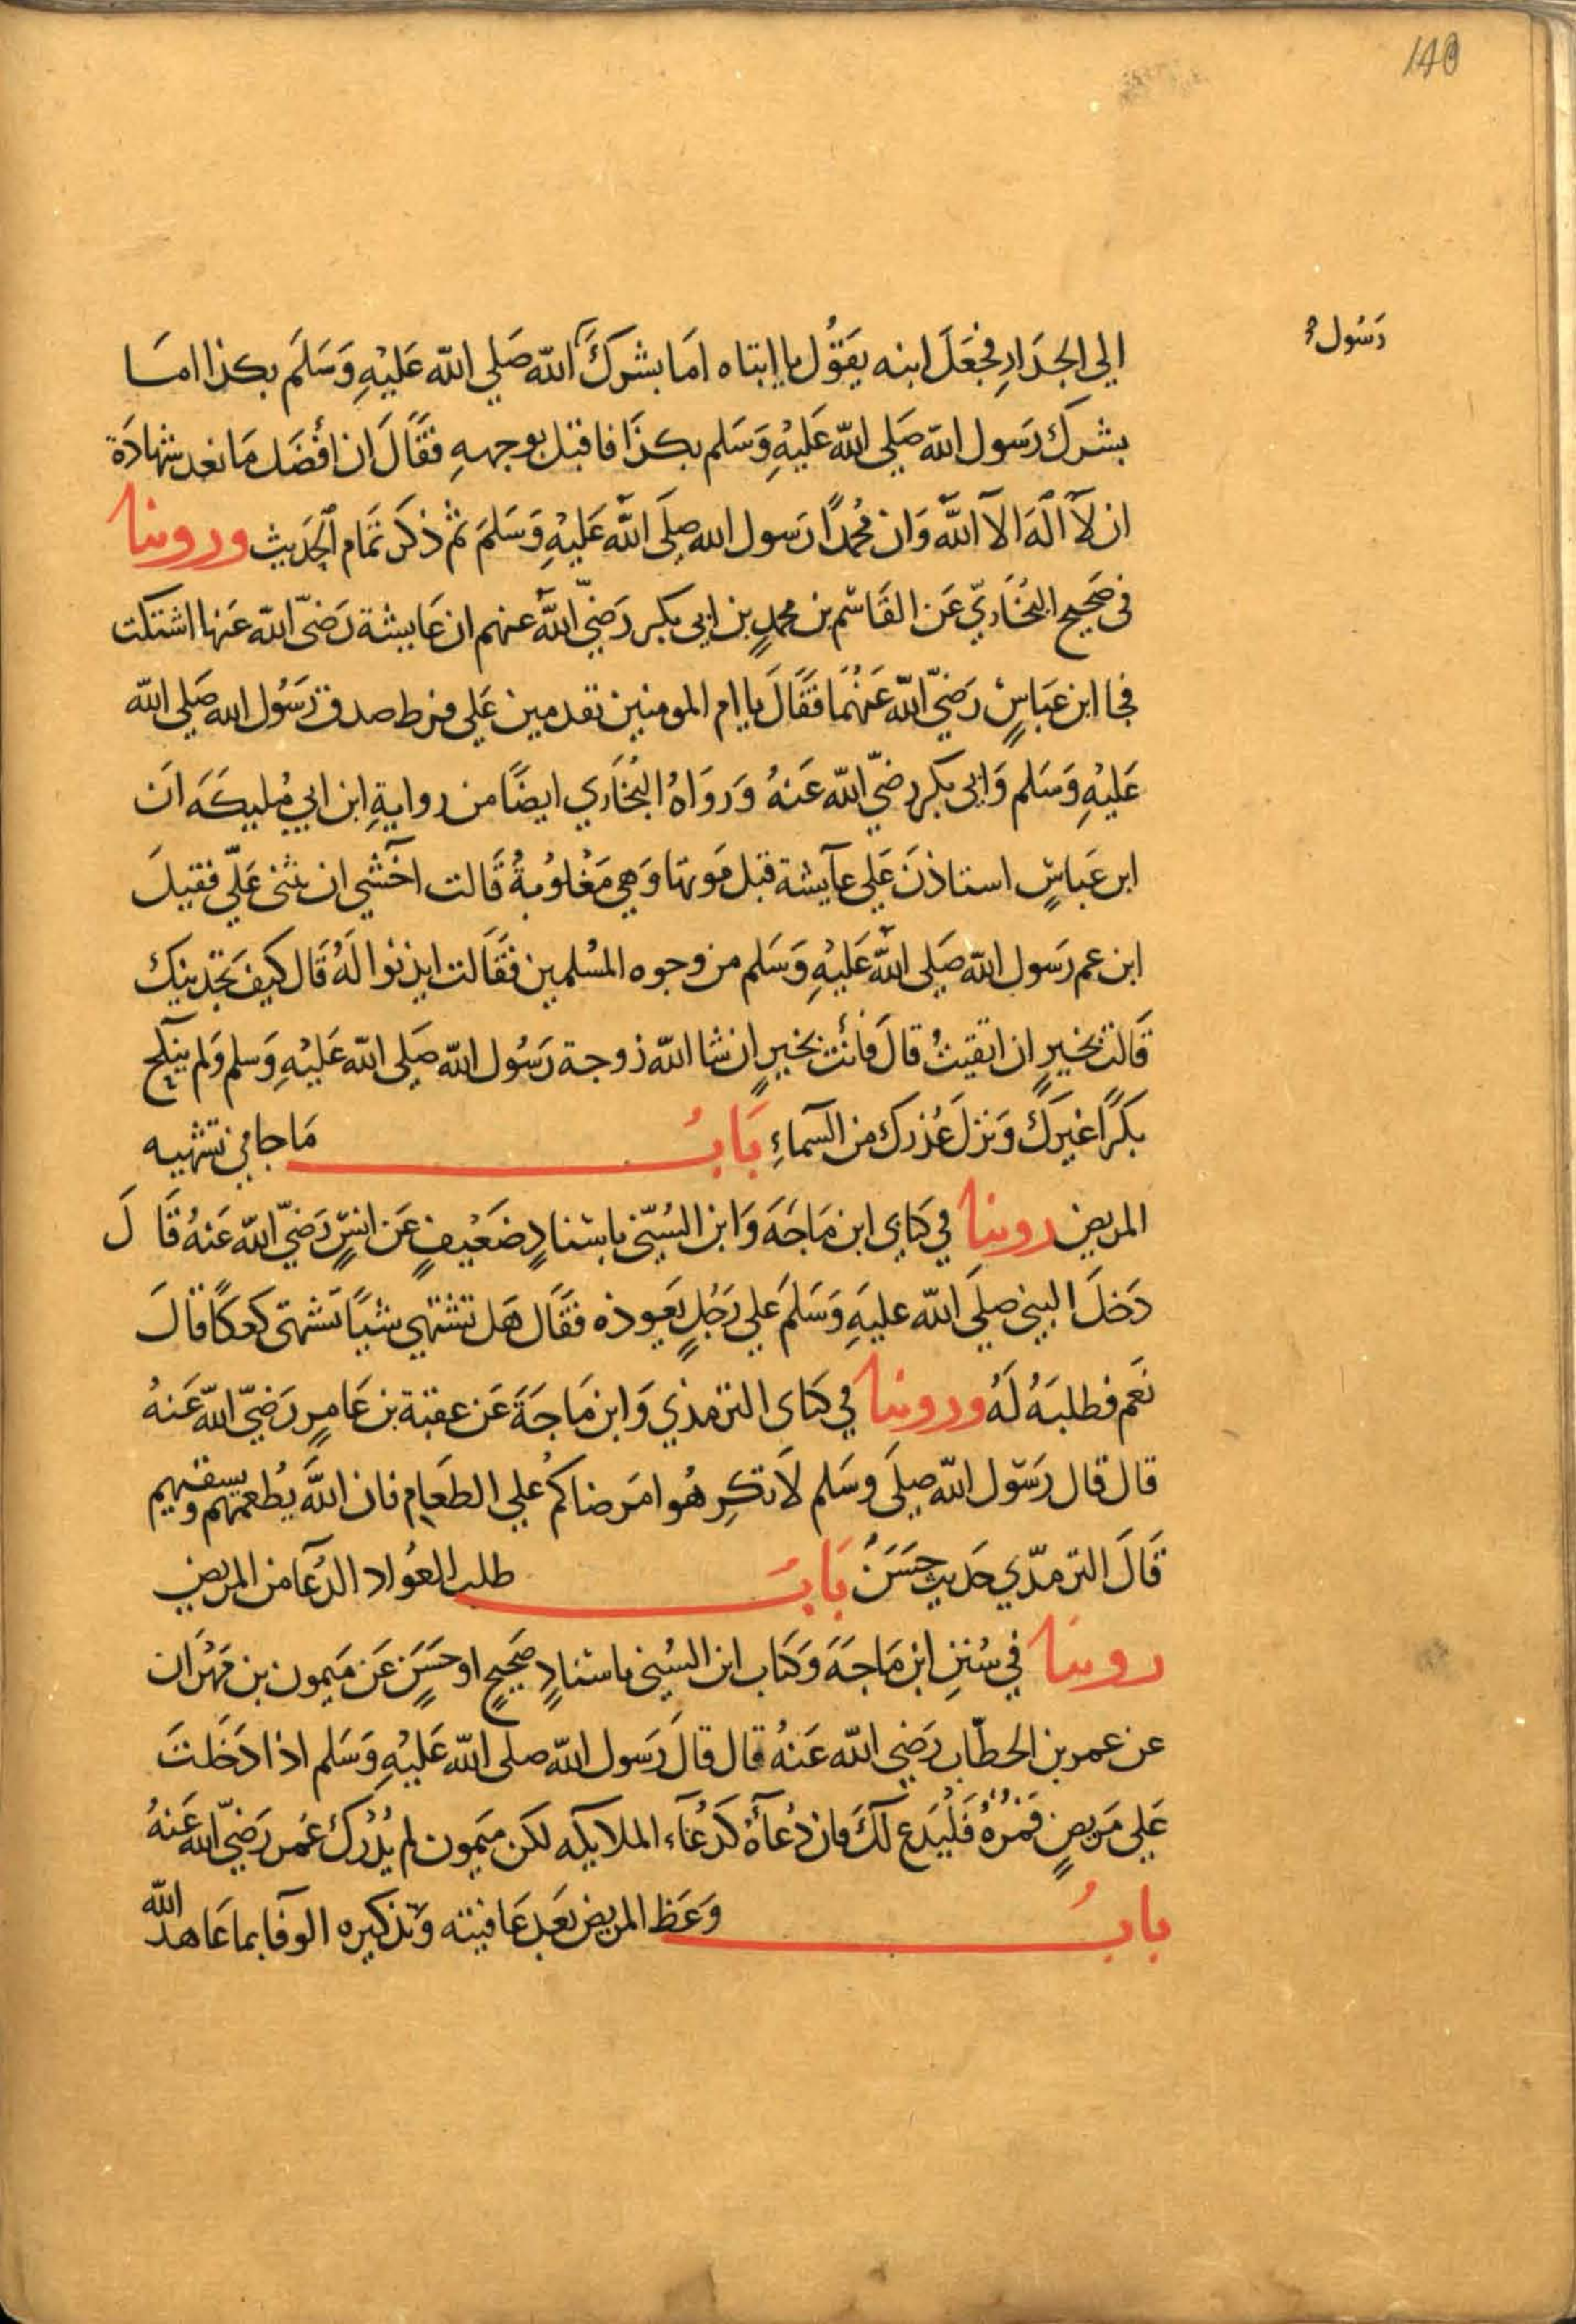 140
رَسُول
الي الجدَارِ فجعَلَ ابنه يقَوُل يا ابتاه امَا بشركَ الله صَلي الله عَليْهِ وَسَلمَ بكذا امسَا
بشركَ رَسول الله صَلي الله عَليْهِ وَسَلم بكذَا فاقبل بوجههِ فقَالَ ان أفضَل مَا نعد شهادَة
ان لاَ الَهَ الا الله وَان مُحمدًا رَسول الله صلَي الله عَليْهِ وَسَلمَ ثم ذكَر تمَام الحَديث وروينا
في صَحيح البُخَاريّ عَن القَاسم بن محمدٍ بن ابي بكر رَضيّ الله عنهم ان عَايشة رَضيّ الله عَنها اشتكت
فجا ابن عَباسٍ رَضيّ الله عَنهُمَا فقَالَ يا ام المومنين تقدمين عَلي فرط صدق رَسُول الله صَلي الله
عَليْهِ وَسَلم وَابي بكر رضيّ الله عَنهُ وَرَوَاهُ البُخَاري ايضًا من روايةِ ابن ابي مُليكَه اَن
ابن عَباسٍ استاذنَ عَلي عآيشة قبل مَوتها وَهي مَغْلوُبةُ قَالت اخَشي ان يثني عَليّ فقيلَ
ابن عم رَسول الله صَلي الله عَليْهِ وَسَلم من وجوه المسُلمين فقَالت ايذنوا لَهُ قَال كيفَ تجَدينك
قَالت بخَيرٍ ان اتقيتُ قالَ فأنت بخيرٍ ان شا الله زوجة رَسُول الله صَلي الله عَليْهِ وَسلم وَلم ينكح
بكرًا غيرَكَ وَنزلَ عُذرك من السَماءِ بَابُ مَا جا في تشهيه
المريض روينا في كتابي ابن مَاجَهَ وَابن السُنّي باسْنادٍ ضَعيْفٍ عَن انسٍ رَضيّ الله عَنهُ قَالَ
دَخلَ النبيّ صلَي الله عليَهِ وَسَلمَ عَلي رَجُلٍ يَعوده فقَال هَل تشتهي شيًا تشتهي كعكًا قالَ
نعَم فطلبَهُ لَهُ وروينا في كتابي الترمذي وَابن مَاجَةَ عَن عقبة بن عَامرٍ رَضيّ الله عَنهُ
قال قال رَسَول الله صلَي وسَلم لاَ تكرِهُوا مَرضاكمُ عَلي الطعَام فان الله يُطعمهم ويسقيهم
قَالَ الترمذي حَديث حسَنُ بَابُ طلب العُواد الدُعا من المريض
روينا في سُننِ ابن مَاجَهَ وَكتاب ابن السُني باسْنادٍ صَحيحٍ او حسَنٍ عَن مَيمون بن مَهْرَان
عن عمر بن الخطاب رَضي الله عَنهُ قال قالَ رَسول الله صلي الله عَليْهِ وَسَلم اذا دَخَلتَ
عَلي مَريضٍ فمُرْهُ فَليْدَع لَكَ فان دُعآءَهُ كَدُعَآء الملايكه لكن مَيمون لم يُدْرك عُمر رَضيّ الله عَنهُ
بابُ وَعَظ المريض بعَد عَافيته وَتذكيره الوَفا بما عَاهد الله